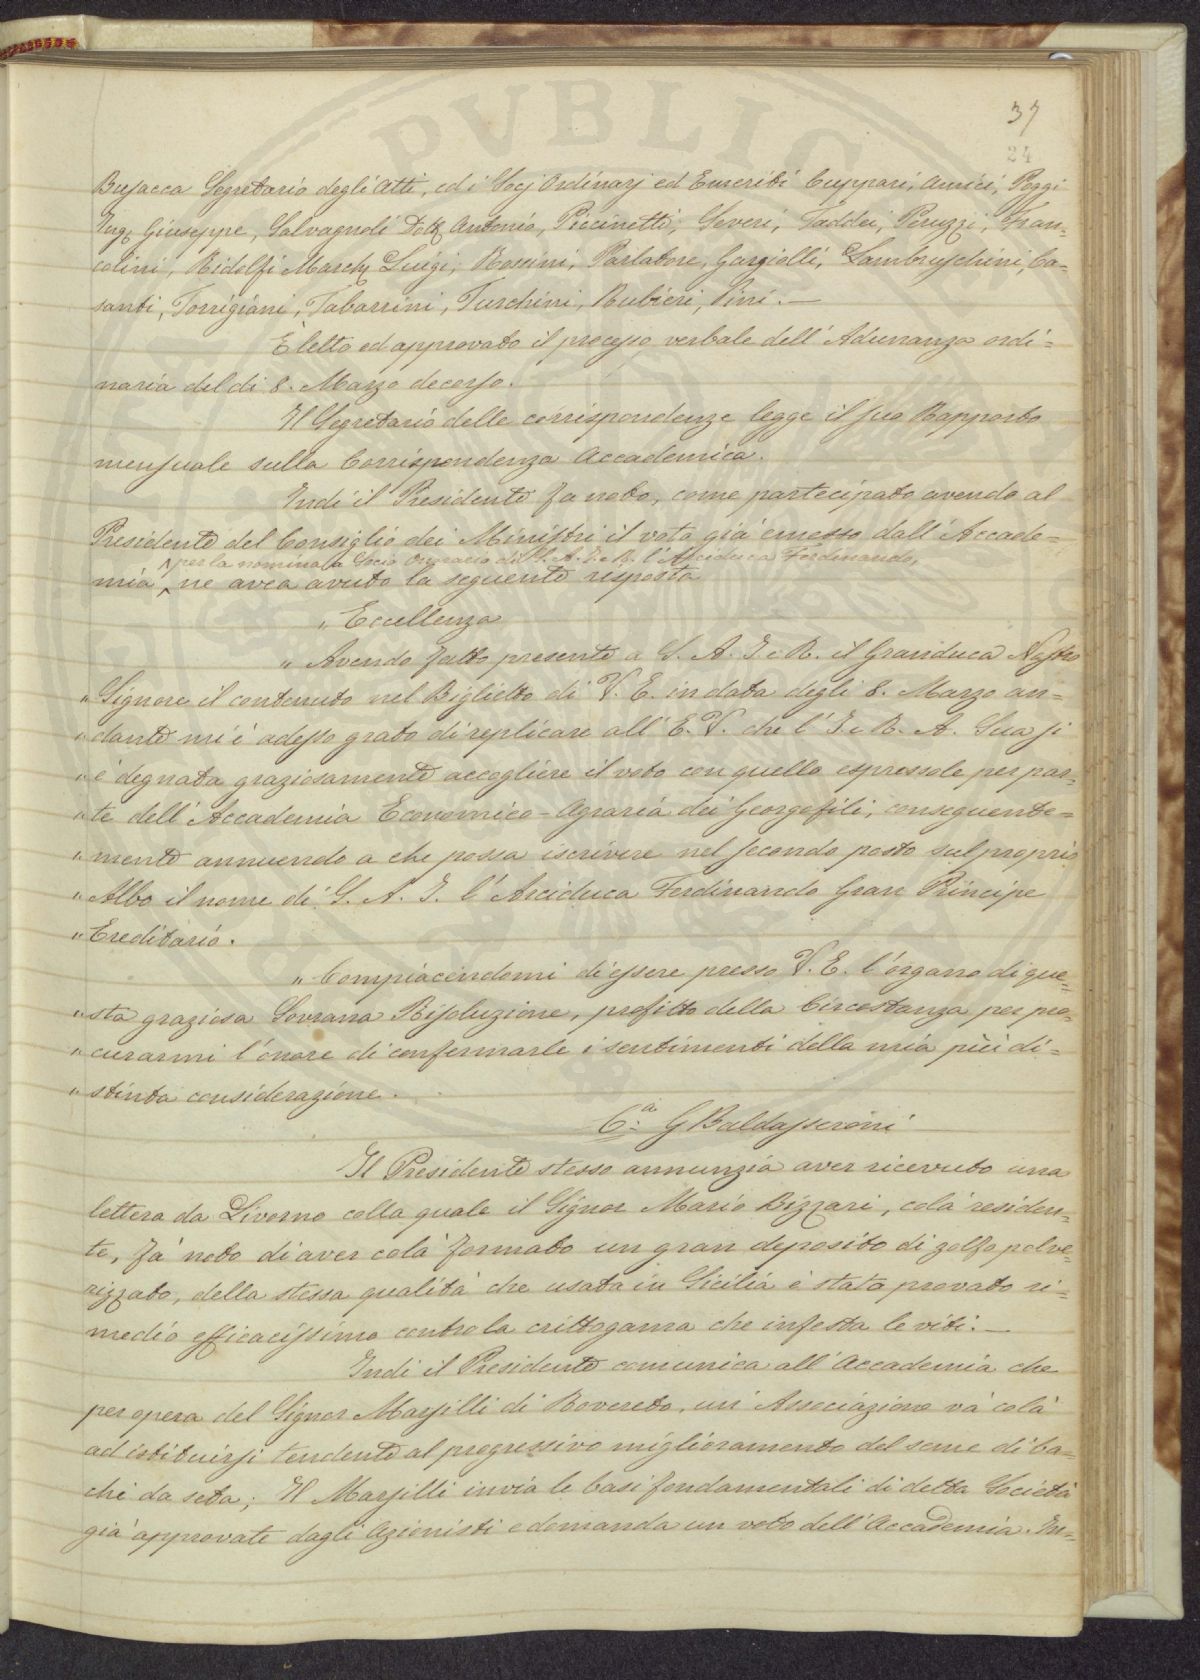 37
24
Busacca Segretario degli Atti, ed i Socj Ordinarj ed Emeriti Cuppari, Amici, Poggi
Ing. Giuseppe, Salvagnoli Dott. Antonio, Piccinetti, Severi, Taddei, Peruzzi, Fran=
colini, Ridolfi March. Luigi, Rossini, Parlatore, Gargiolli, Lambruschini, Ca=
santi, Torrigiani, Tabarrini, Turchini, Rubieri, Pini. —
È letto ed approvato il processo verbale dell' Adunanza ordi=
naria del di 8. Marzo decorso.
Il Segretario delle corrispondenze legge il suo Rapporto
mensuale sulla Corrispondenza Accademica.
Indi il Presidente fa noto, come partecipato avendo al
Presidente del Consiglio dei Ministri il voto già emesso dall' Accade=
per la nomina a Socio Onorario di S. A. I. e R. l'Arciduca Ferdinando,
mia ^ ne avea avuto la seguente risposta
" Eccellenza
" Avendo fatto presente a S. A. I. e R. il Granduca Nostro
" Signore il contenuto nel Biglietto di V. E. in data degli 8. Marzo an=
" dante mi è adesso grato di replicare all' E. V. che l' I. e R. A. Sua si
" è degnata graziosamente accogliere il voto con quello espressole per par=
" te dell' Accademia Economico-Agraria dei Georgofili, conseguente=
" mente annuendo a che possa iscrivere nel secondo posto sul proprio
" Albo il nome di S. A. I. l' Arciduca Ferdinando Gran Principe
" Ereditario.
" Compiacendomi di essere presso V. E. l'organo di que=
" sta graziosa Sovrana Risoluzione, profitto della Circostanza per pro=
" curarmi l'onore di confermarle i sentimenti della mia più di=
" stinta considerazione.
C.a G Baldasseroni
Il Presidente stesso annunzia aver ricevuto una
lettera da Livorno colla quale il Signor Mario Bizzari, colà residen=
te, fà noto di aver colà formato un gran deposito di zolfo polve=
rizzato, della stessa qualità che usata in Sicilia è stato provato ri=
medio efficacissimo contro la crittogama che infesta le viti. —
Indi il Presidente comunica all' Accademia che
per opera del Signor Marsilli di Rovereto, un' Associazione và colà
ad istituirsi tendente al progressivo miglioramento del seme di ba=
chi da seta; Il Marsilli invia le basi fondamentali di detta Società
già approvate dagli Azionisti e domanda un voto dell' Accademia. In=
PVBLIC